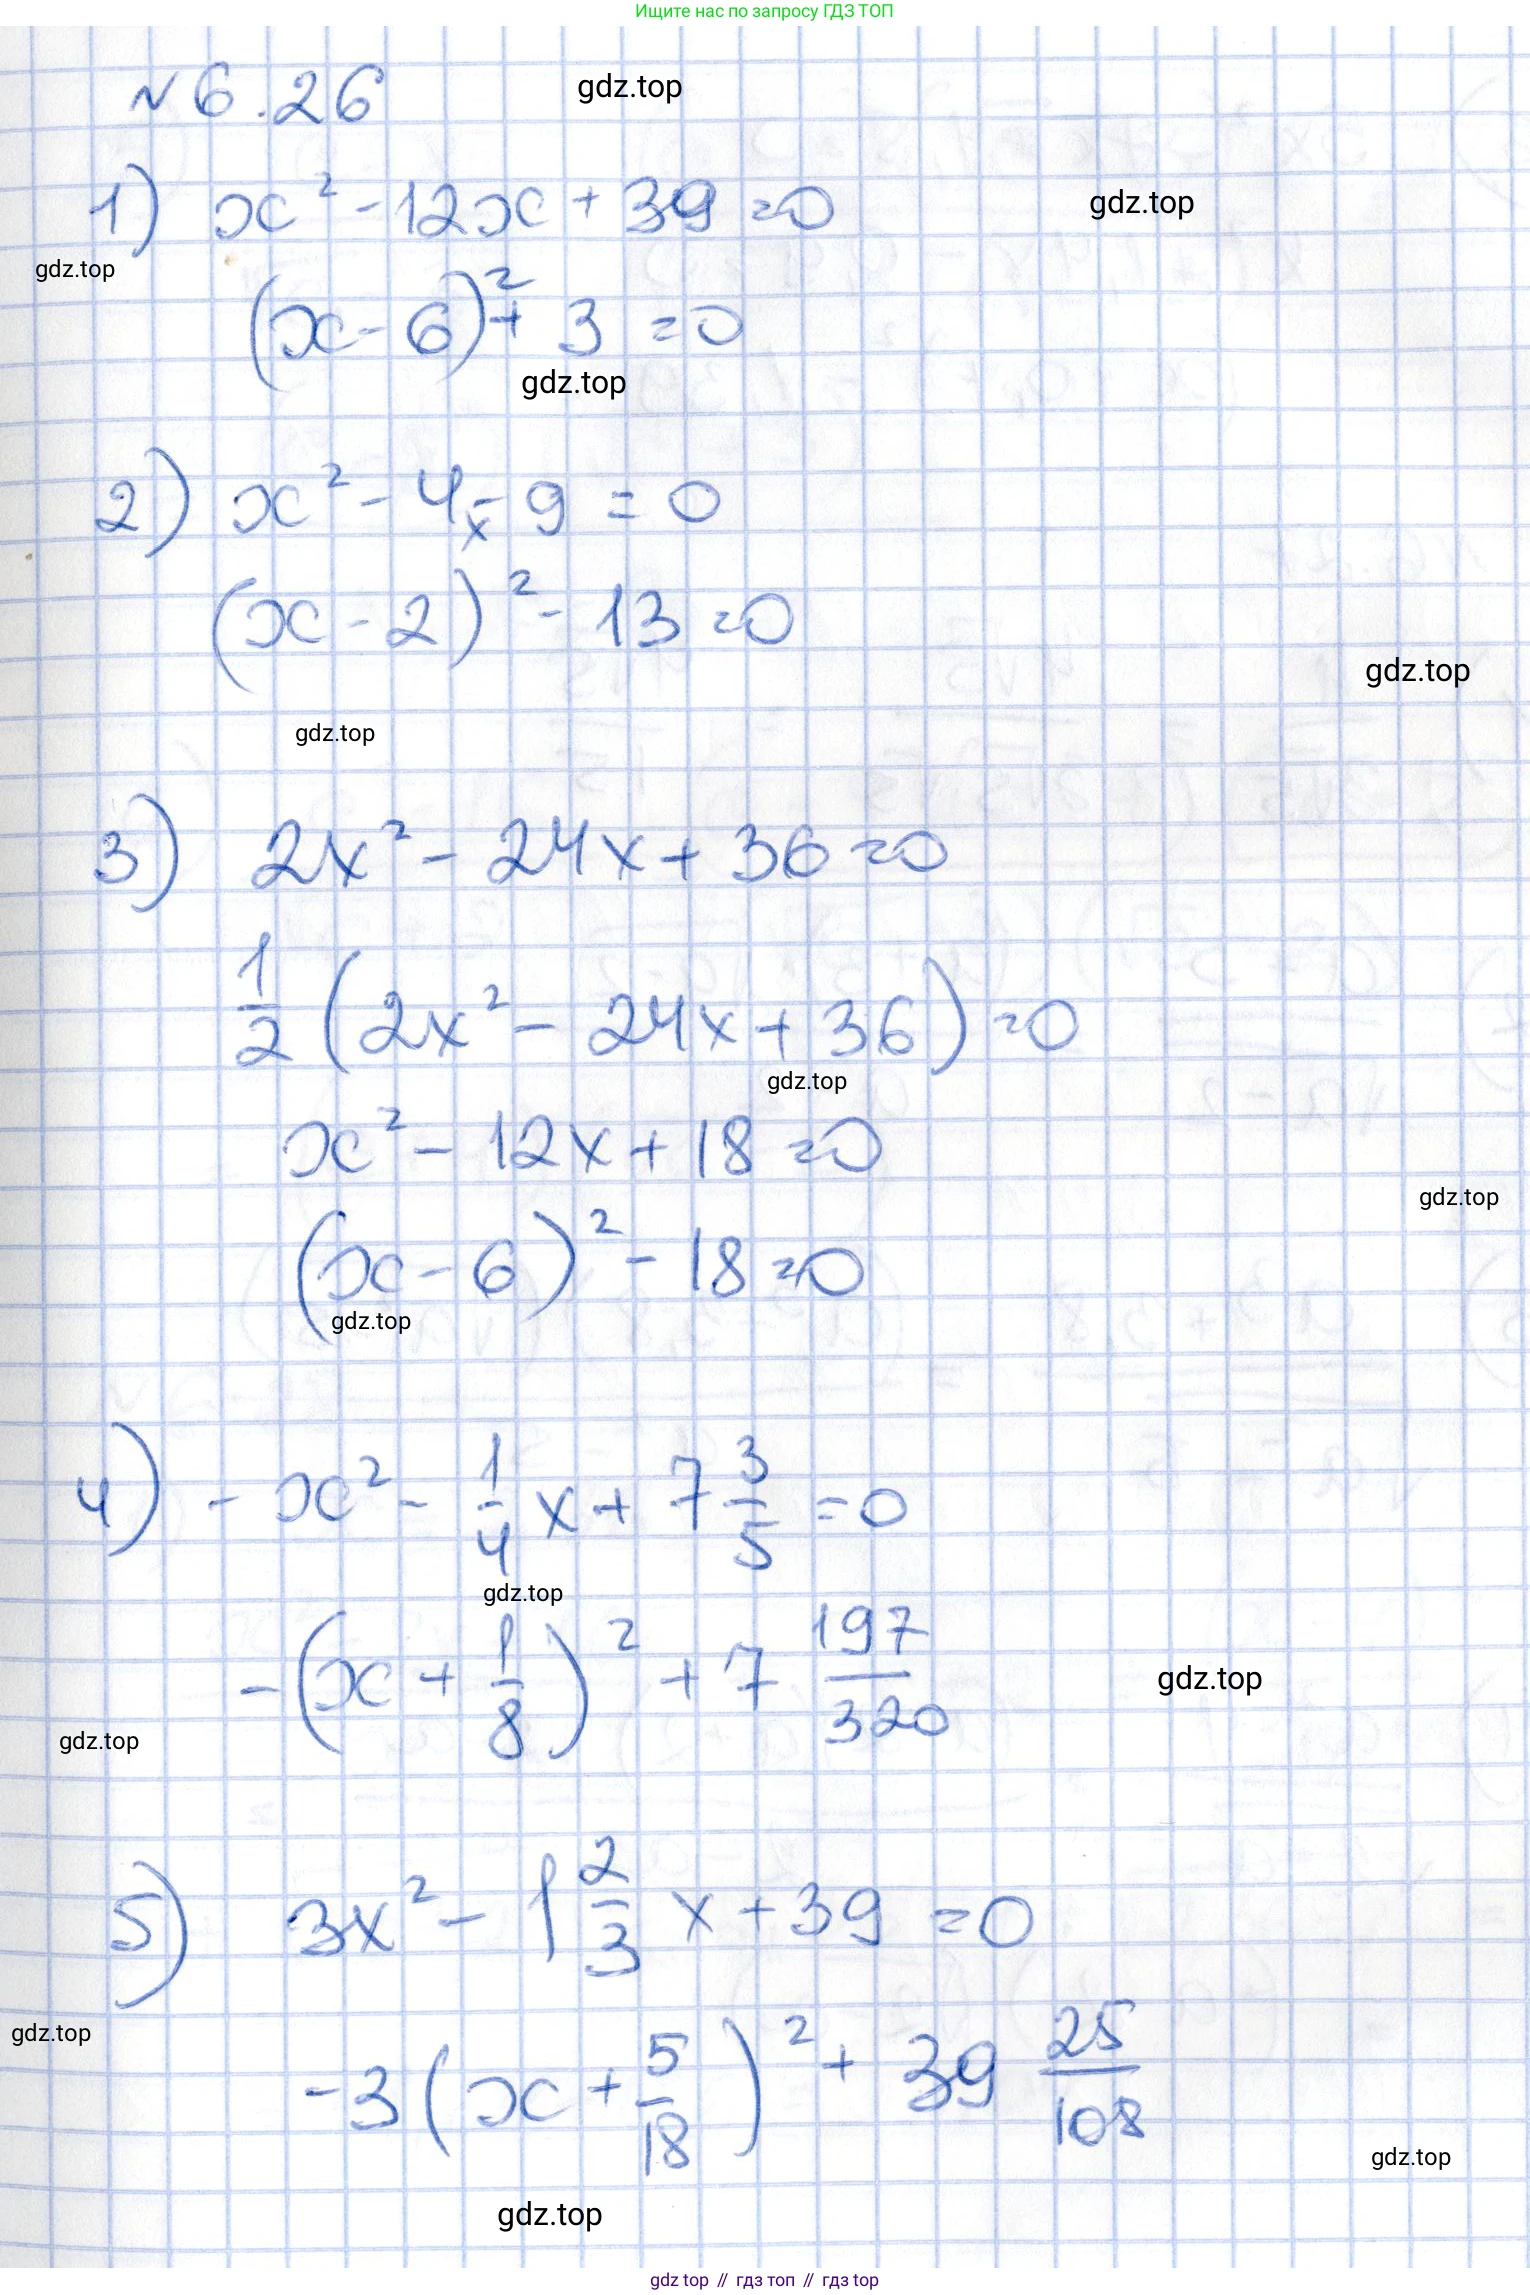 Ищите нас по запросу ГДЗ ТОП
№ 6.26
gdz.top
1) x² - 12x + 39 = 0
gdz.top
gdz.top
(x - 6)² + 3 = 0
gdz.top
2) x² - 4x - 9 = 0
(x - 2)² - 13 = 0
gdz.top
gdz.top
3) 2x² - 24x + 36 = 0
1/2 (2x² - 24x + 36) = 0
gdz.top
x² - 12x + 18 = 0
gdz.top
(x - 6)² - 18 = 0
gdz.top
4) - x² - 1/4 x + 7 3/5 = 0
gdz.top
-(x + 1/8)² + 7 197/320
gdz.top
gdz.top
5) 3x² - 1 2/3 x + 39 = 0
gdz.top
-3(x + 5/18)² + 39 25/108
gdz.top
gdz.top
gdz top // гдз топ // гдз top